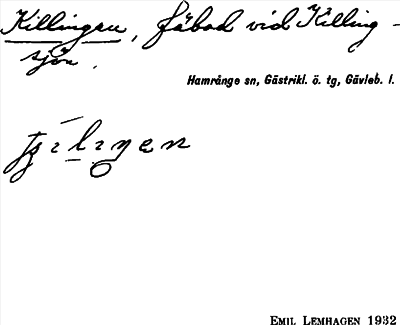 Killingen, fäbod vid Killing-
sjön.
Hamrånge sn, Gästrikl. ö. tg, Gävleb. l.
EMIL LEMHAGEN 1932